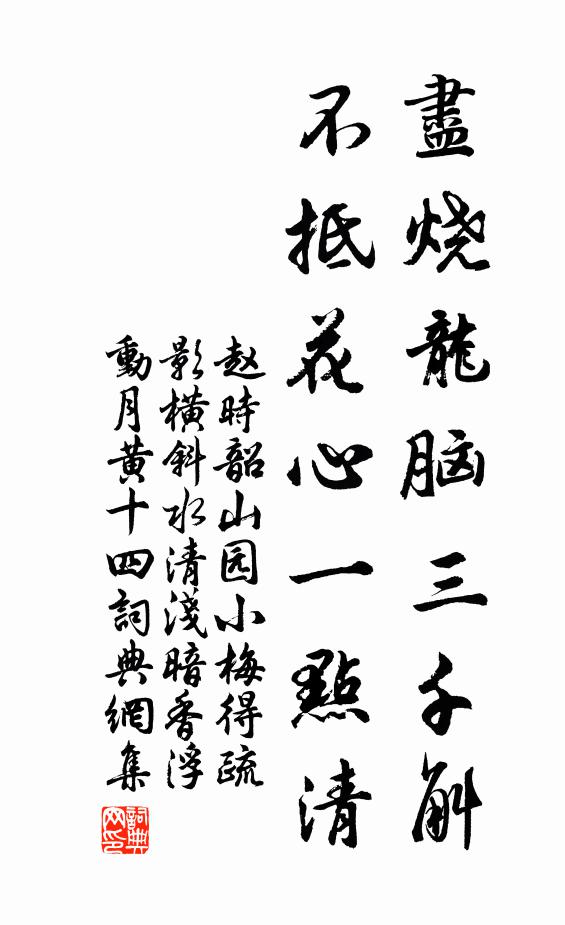 盡烧龍脑三千斛
不抵花心一點清
赵時韶山园小梅得疏
影横斜水清淺暗香浮
動月黄十四詞典網集
詞典网印